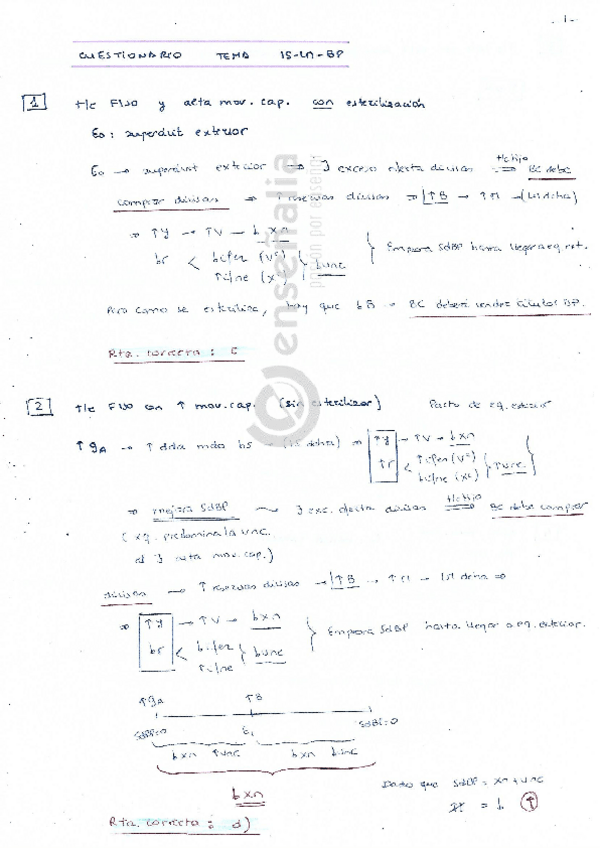 - 1 -
CUESTIONARIO TEMA IS-LM-BP
1 t/c Fijo y alta mov. cap. con esterilización
E₀: superávit exterior
E₀ → superávit exterior ⇒ ∃ exceso oferta divisas t/c fijo ⇒ BC debe
comprar divisas ⇒ ↑ reservas divisas ⇒ ↑B → ↑M → (LM dcha)
⇒ ↑Y → ↑V → ↓xn
↓r < ↓ifen (Vᶜ) ↑ifne (Xᶜ) } ↓unc } Empeora SdBP hasta llegar a eq. ext.
Pero como se esteriliza, hay que ↓B → BC deberá vender títulos DP.
Rta. correcta: c
2 t/c Fijo con ↑ mov. cap. (sin esterilizar) Parto de eq. exterior
↑gA → ↑ dda mdo bs → (IS dcha) ⇒ ↑Y → ↑V → ↓xn
↑r < ↑ifen (Vᶜ) ↓ifne (Xᶜ) } ↑unc }
⇒ mejora SdBP ∃ exc. oferta divisas t/c fijo ⇒ BC debe comprar
(xq. predomina la unc.
al ∃ alta mov. cap.)
divisas → ↑ reservas divisas → ↑B → ↑M → LM dcha ⇒
⇒ ↑Y → ↑V → ↓xn
↓r < ↓ifen ↑ifne } ↓unc } Empeora SdBP hasta llegar a eq. exterior.
↑gA ↑B
SdBP=0 E₁ SdBP=0
↓xn ↑unc ↓xn ↓unc
↓xn
Dado que SdBP = xn + unc
= ↓ ↑
Rta. correcta: d)
enseñalia
pasión por enseñar